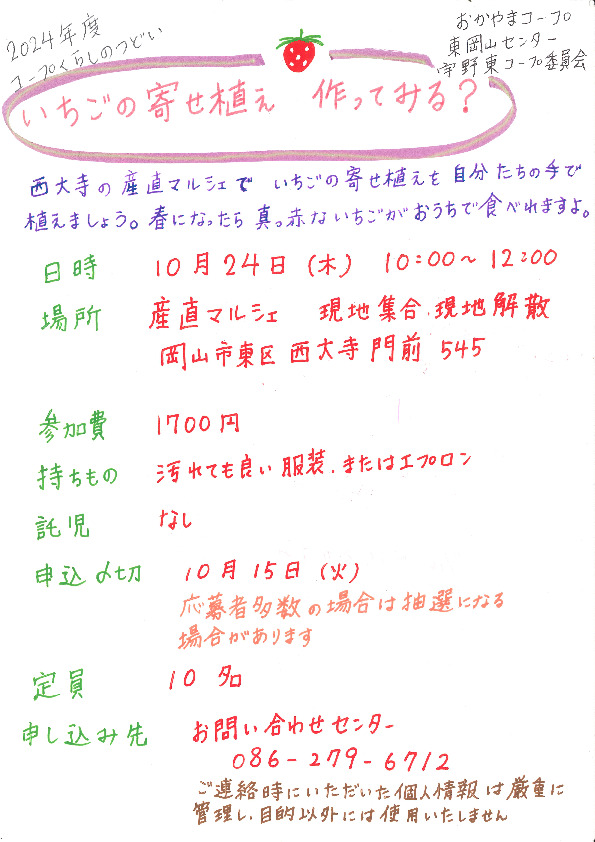 2024年度
コープくらしのつどい
おかやまコープ
東岡山センター
宇野東コープ委員会
いちごの寄せ植え 作ってみる？
西大寺の産直マルシェで いちごの寄せ植えを自分たちの手で
植えましょう。春になったら真っ赤ないちごがおうちで食べれますよ。
日時 10月24日(木) 10:00～12:00
場所 産直マルシェ 現地集合.現地解散
岡山市東区西大寺門前 545
参加費 1700円
持ちもの 汚れても良い服装.またはエプロン
託児 なし
申込〆切 10月15日(火)
応募者多数の場合は抽選になる
場合があります
定員 10名
申し込み先 お問い合わせセンター
086-279-6712
ご連絡時にいただいた個人情報は厳重に
管理し、目的以外には使用いたしません